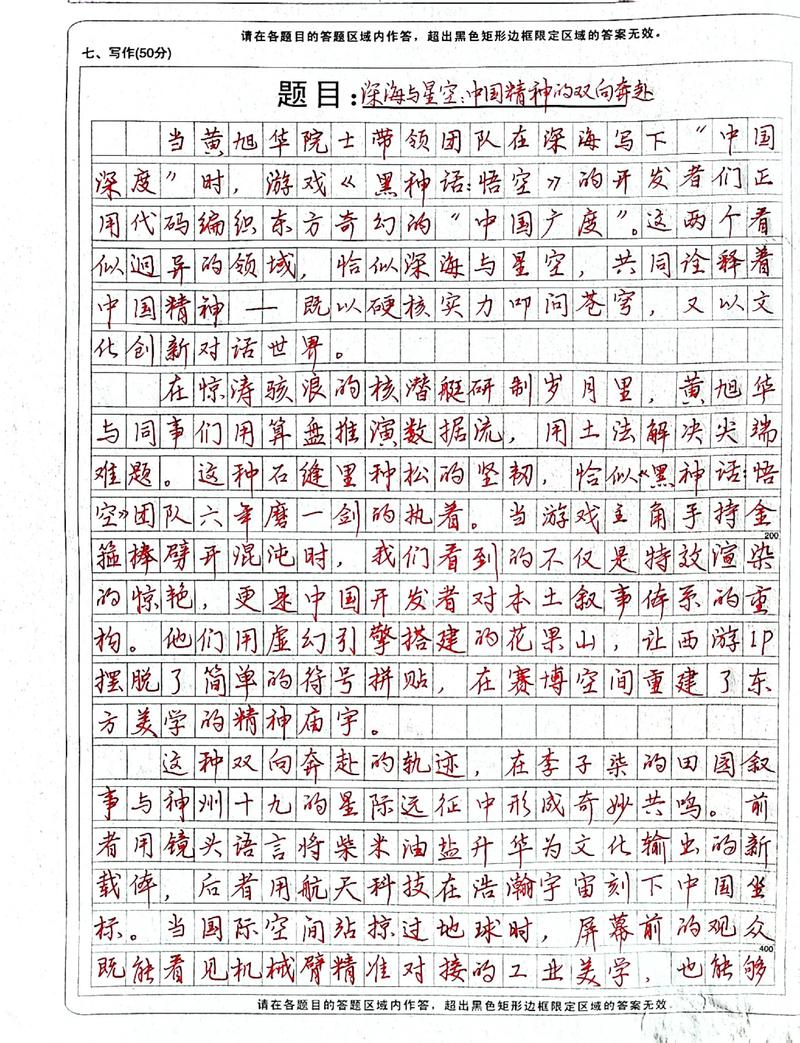 请在各题目的答题区域内作答，超出黑色矩形边框限定区域的答案无效。
七、写作(50分)
题目:深海与星空:中国精神的双向奔赴
当黄旭华院士带领团队在深海写下“中国
深度”时，游戏《黑神话:悟空》的开发者们正
用代码编织东方奇幻的“中国广度”。这两个看
似迥异的领域，恰似深海与星空，共同诠释着
中国精神——既以硬核实力叩问苍穹，又以文
化创新对话世界。
在惊涛骇浪的核潜艇研制岁月里，黄旭华
与同事们用算盘推演数据流，用土法解决尖端
难题。这种石缝里种松的坚韧，恰似《黑神话:悟
空》团队六年磨一剑的执着。当游戏主角手持金
200
箍棒劈开混沌时，我们看到的不仅是特效渲染
的惊艳，更是中国开发者对本土叙事体系的重
构。他们用虚幻引擎搭建的花果山，让西游IP
摆脱了简单的符号拼贴，在赛博空间重建了东
方美学的精神庙宇。
这种双向奔赴的轨迹，在李子柒的田园叙
事与神州十九的星际远征中形成奇妙共鸣。前
者用镜头语言将柴米油盐升华为文化输出的新
载体，后者用航天科技在浩瀚宇宙刻下中国坐
标。当国际空间站掠过地球时，屏幕前的观众
400
既能看见机械臂精准对接的工业美学，也能够
请在各题目的答题区域内作答，超出黑色矩形边框限定区域的答案无效